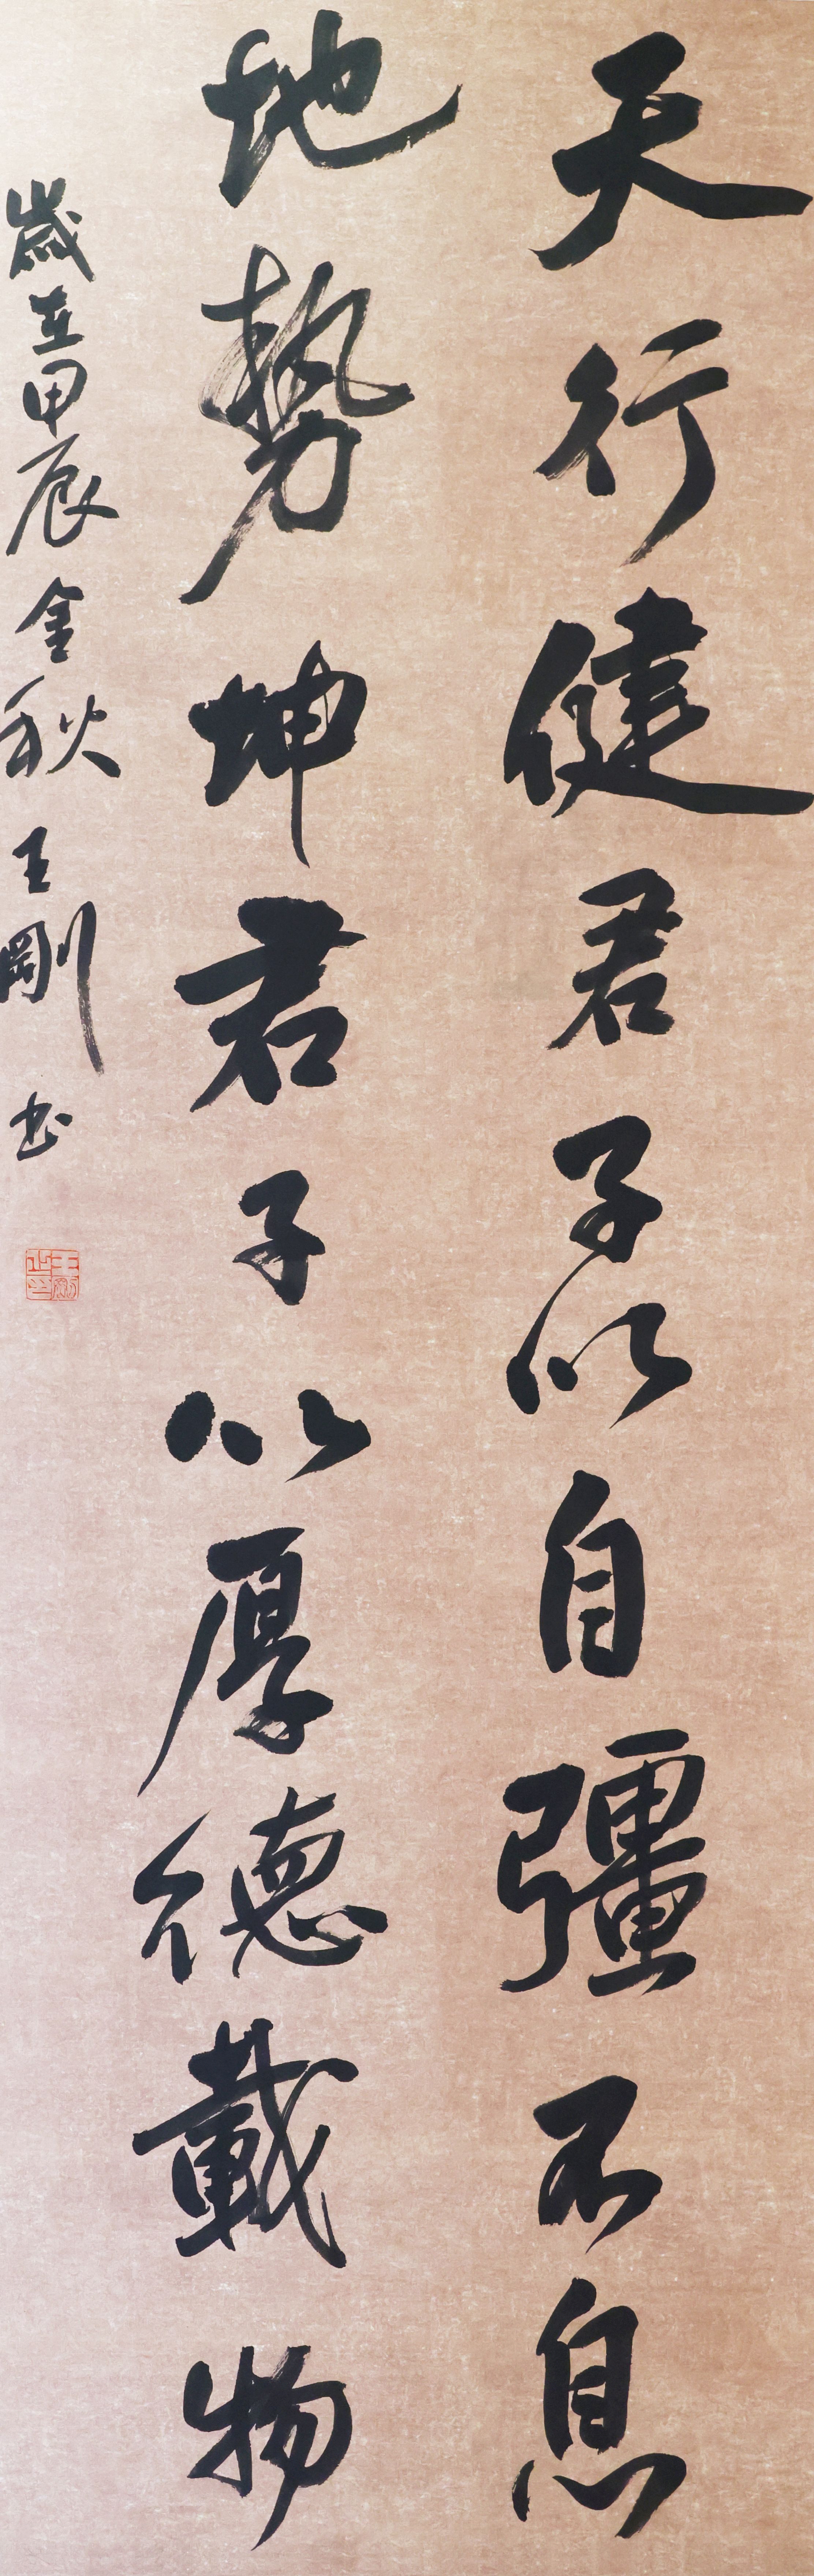 天行健君子以自彊不息
地勢坤君子以厚德載物
歲在甲辰金秋王剛书
王剛之印